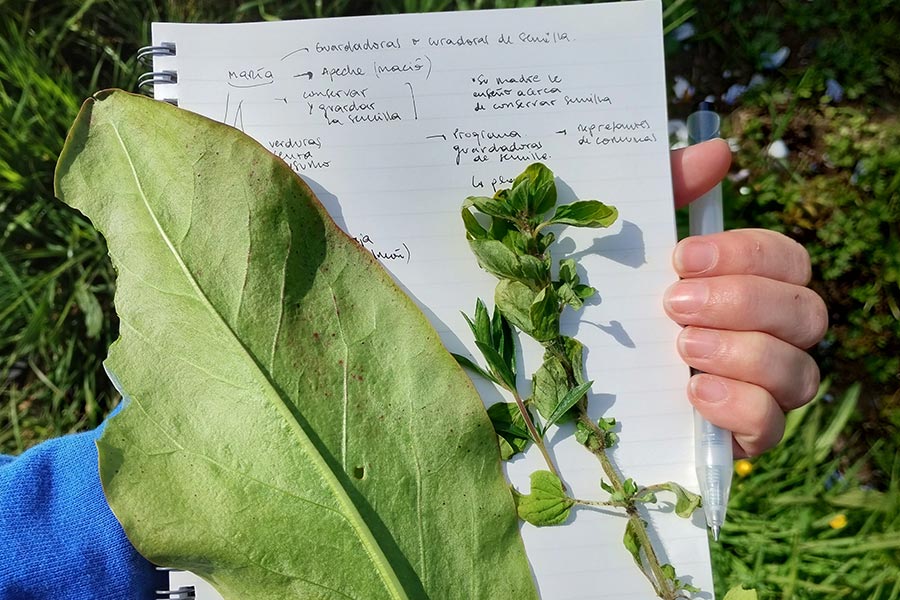 Guardadoras o curadoras de semilla.
María → Apeche (macis)
→ conservar
y guardar
la semilla
• Su madre le
enseño acerca
de conservar semilla
verduras
→ Programa
guardadoras
de semilla.
→ represetantes
de comunas